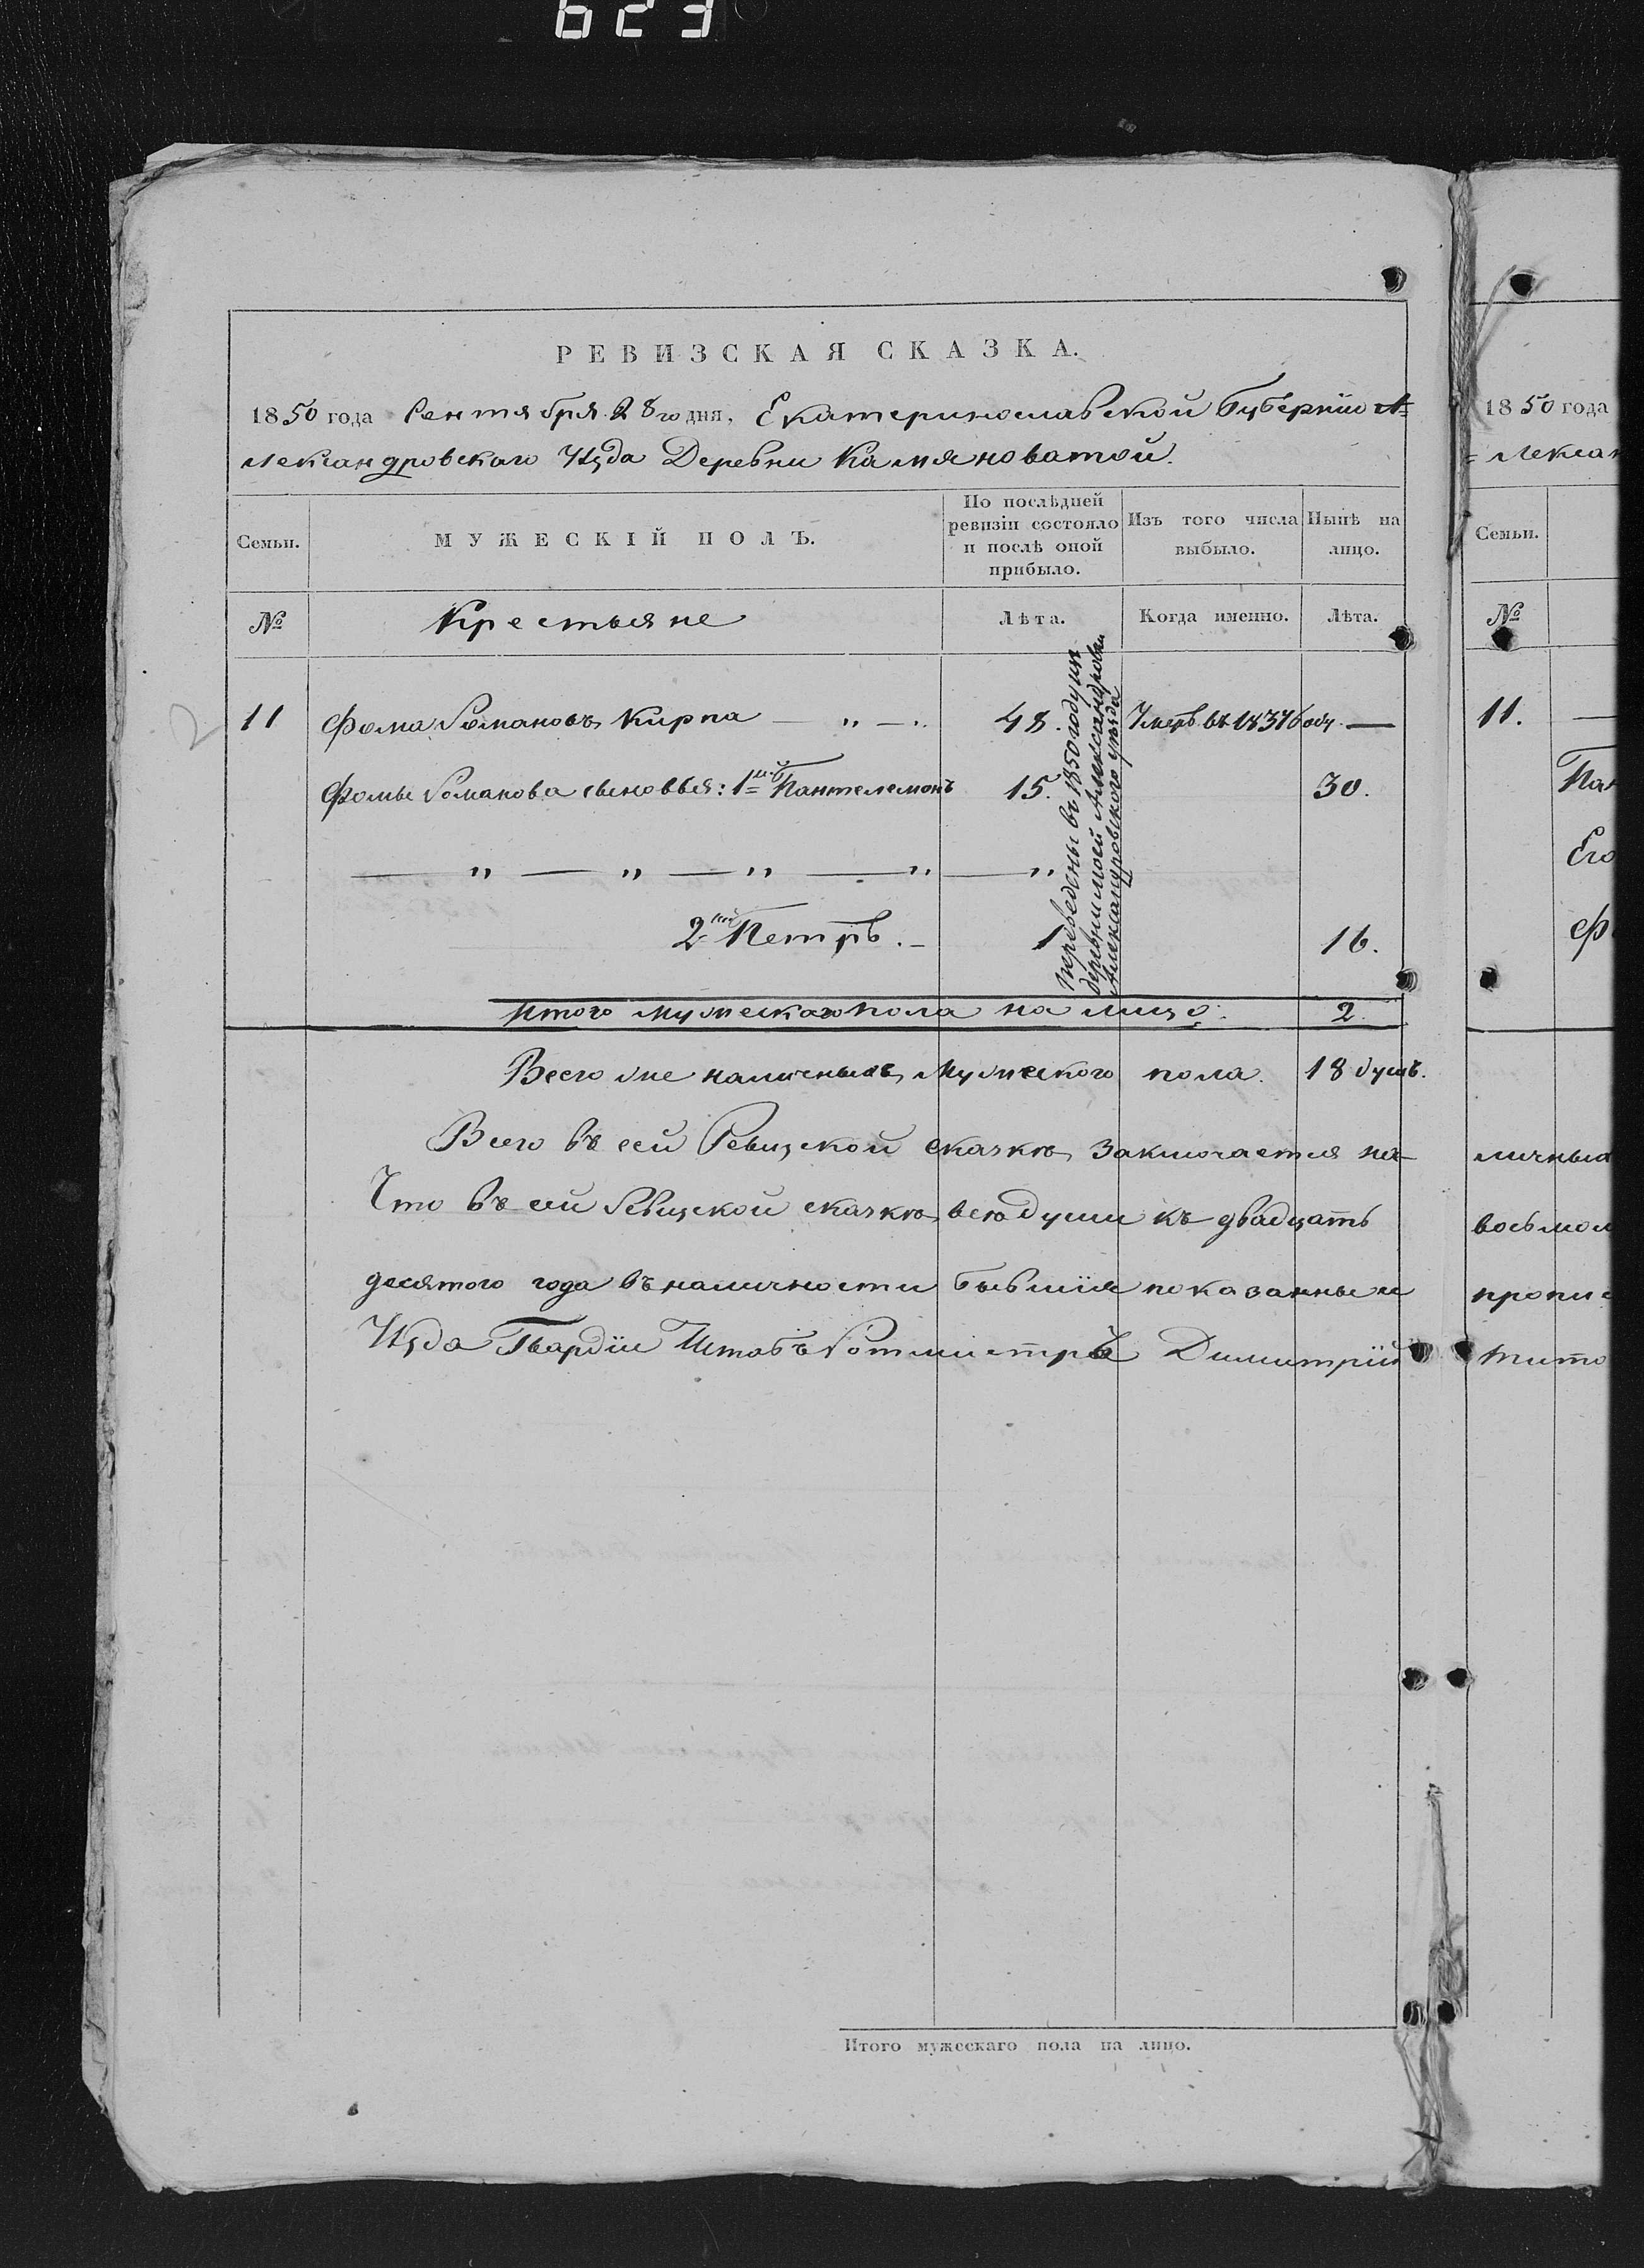 623
РЕВИЗСКАЯ СКАЗКА.
1850 года Сентября 28 го дня, Екатеринославской Губерніи А=
лександровскаго Уѣзда Деревни Камяноватой.
Семьи.
МУЖЕСКІЙ ПОЛЪ.
По послѣдней ревизіи состояло и послѣ оной прибыло.
Изъ того числа выбыло.
Нынѣ на лицо.
№
Крестьяне
Лѣта.
Когда именно.
Лѣта.
11 Фома Романовъ Кирпа — " — " 48. Умеръ въ 1837 году. —
Фомы Романова сыновья: 1й Пантелемонъ 15. 30.
— " — " — " — " — "
2й Петръ. 1 16.
переведены въ 1850 году изъ
деревни моей Александровки
Александровского уѣзда
Итого мужескаго пола на лицо: 2.
Всего же наличныхъ мужеского пола. 18 душъ.
Всего въ сей Ревизской сказкѣ заключается на-
Что въ сей Ревизской сказкѣ все души къ двадцать
десятого года въ наличности бывшія показанны и
Уѣзда Гвардіи Штабъ Ротмистръ Димитрій
Итого мужескаго пола на лицо.
1850 года
=лексан
Семьи.
№
11. —
Пан
Его
Ф
личныхъ
восьмом
пропис
титo
2